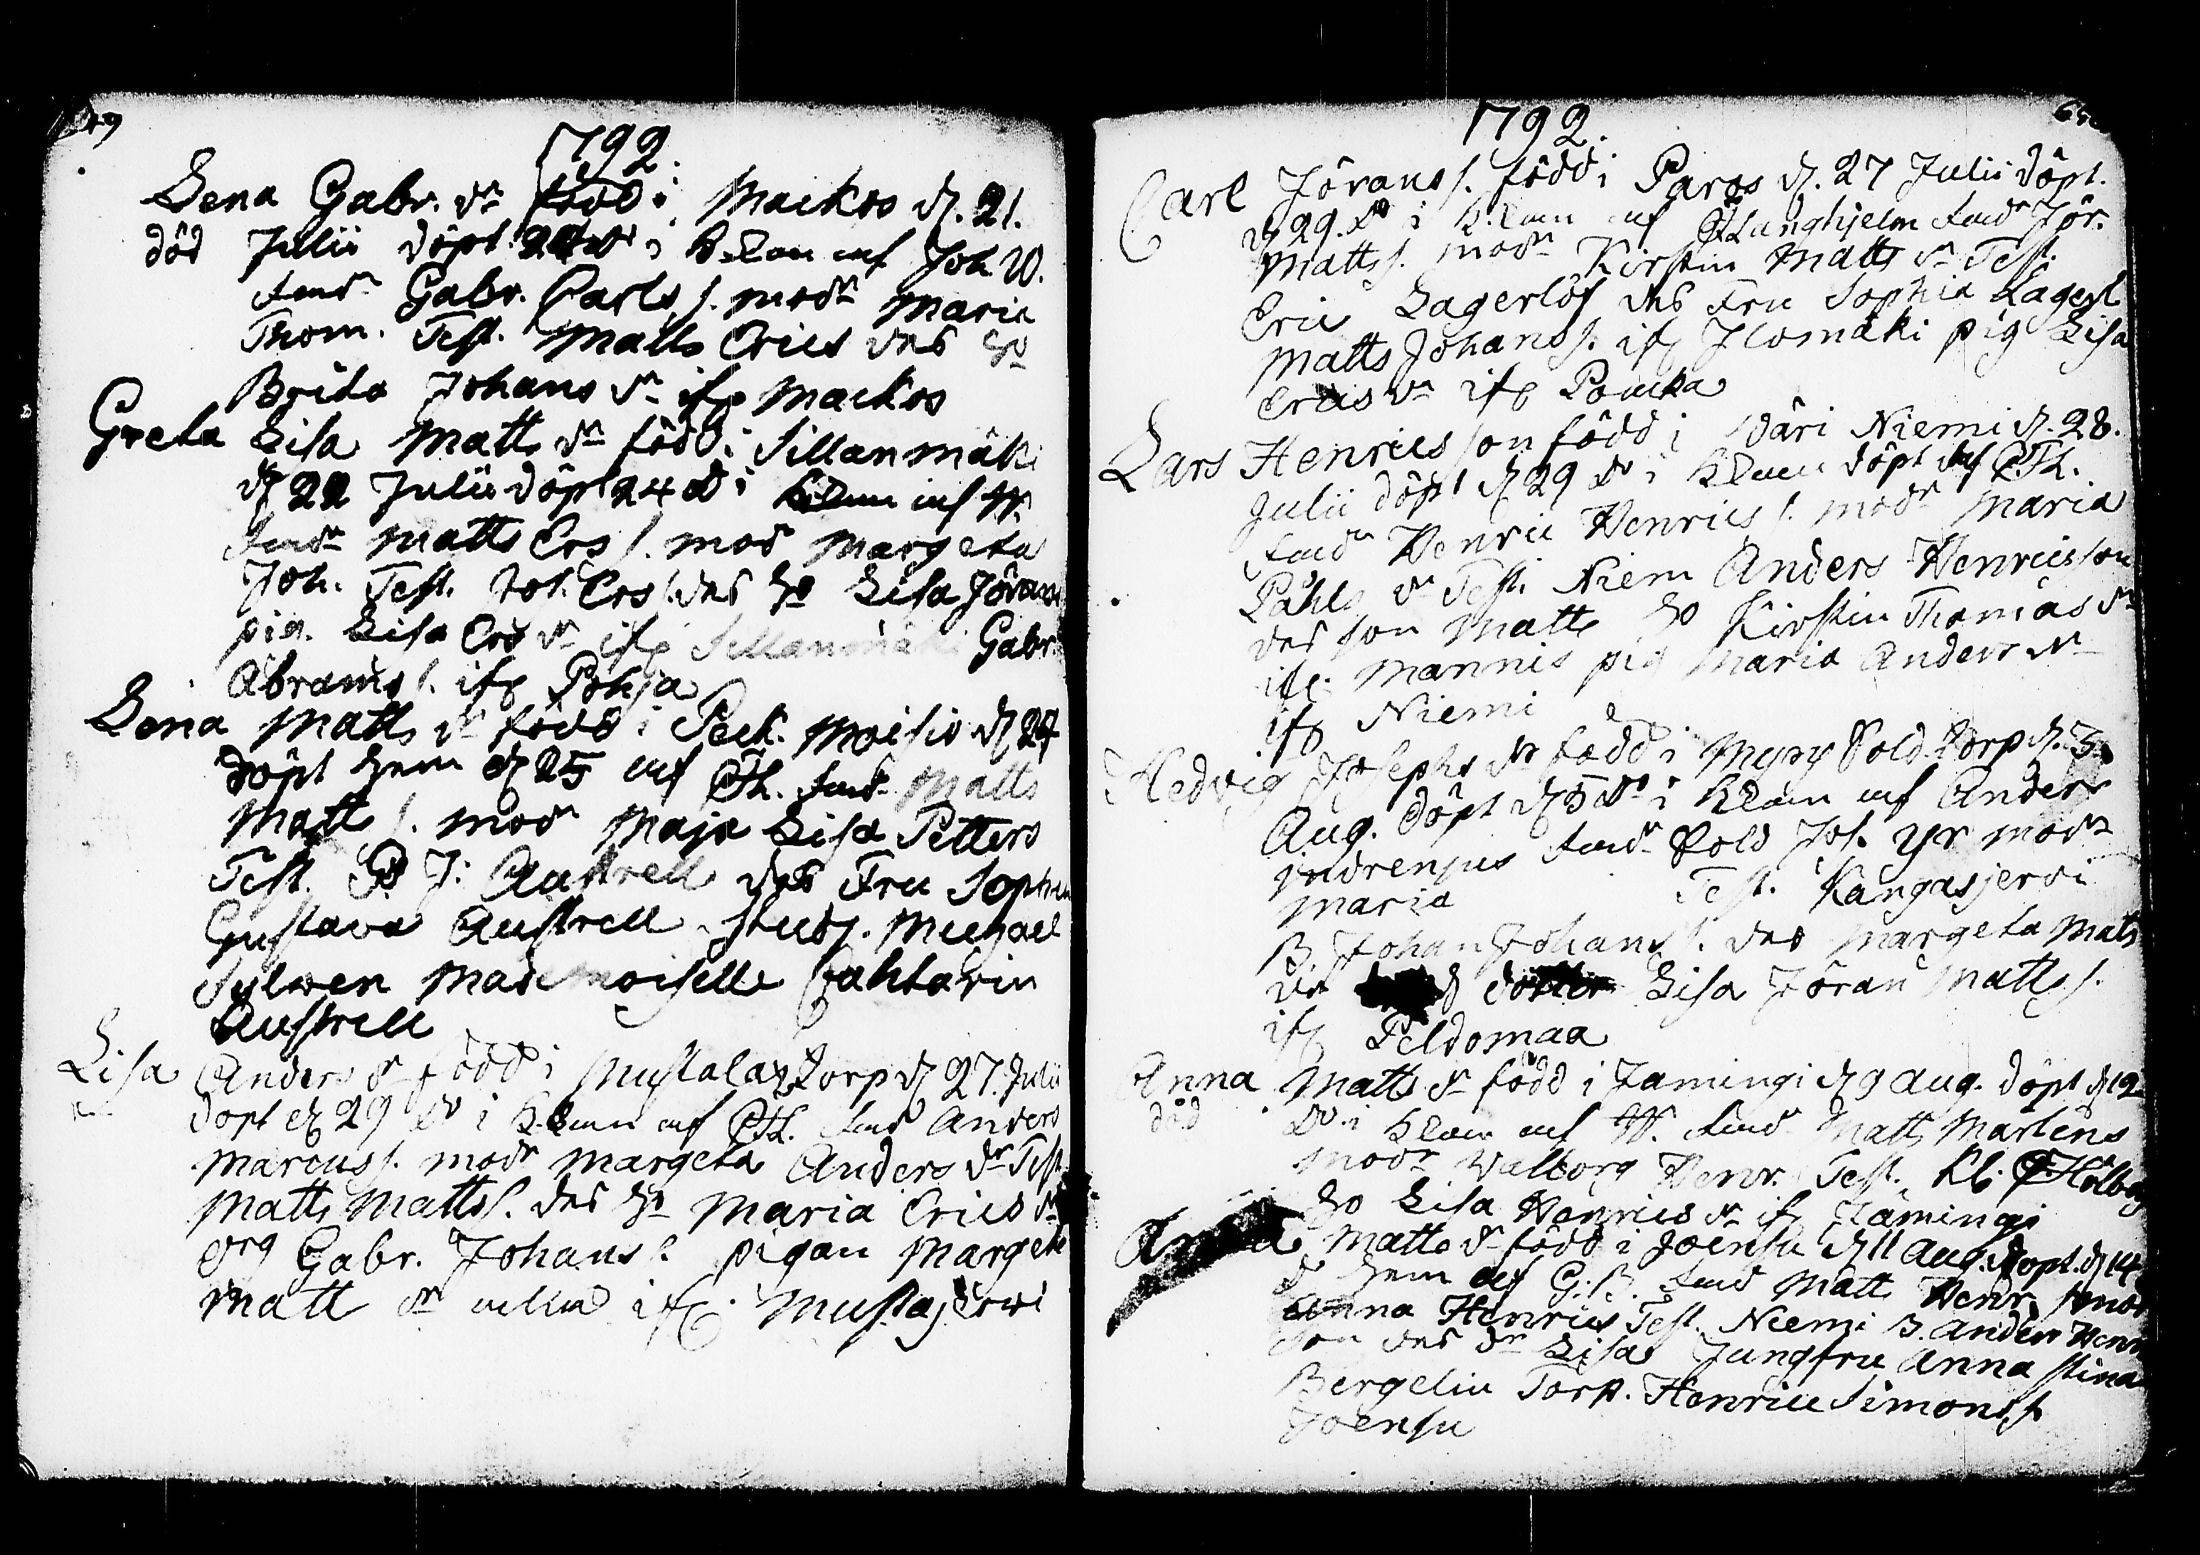 1792.
Lena Gabr. dr född i Maekos d. 21.
död Julii döpt i Kl:an af Joh W.
fadr Gabr. Carls s. modr Maria
Thom. Test. Matts Erics des ho
Brita Johans dr ifr Maekos
Greta Lisa Matts dr född i Sillanmäki
d 22 Julii döpt 24 do i af W.
fadr Matts Ers s. mod Margeta
Joh. Test. Joh. Ers s. des ho Lisa Jörans
pig. Lisa Ers dr ifr Sillanmäki Gabr.
Abrams s. ifr Pohja
Lena Matts dr född i Peck. Moisio d 24
döpt hem d 25 af Th. fadr Matts
Matts s. modr Maja Lisa Petters
Test. J: Austrell des Fru Sophia
Gustava Austrell Stud. Michael
Sylven Mademoiselle Cahtarin
Austrell
Lisa Anders dr född i Mustalax torp d 27. Julii
döpt d 29 do i Kl:an af Th. fadr Anders
Marcus s. modr Margeta Anders dr Test.
Matts Matts s. des ho Maria Erics dr
drg Gabr. Johans s. pigan Margeta
Matts dr alla ifr. Mustajerwi
1792.
Carl Jörans s. född i Paros d. 27 Julii döpt.
d 29. do i Kl:an af Ljunghjelm fadr Jör.
Matts s. modr Kirstin Matts dr Test.
Eric Lagerlöf des Fru Sophia Lagerl
Matts Johans s. ifr Ilomäki pig Lisa
Erics dr ifr
Lars Henrics son född i Wäri Niemi d. 28.
Julii döpt d 29 do i Kl:an döpt af Th.
fadr Henric Henrics s. modr Maria
Påhls dr Test. Niem Anders Henrics son
des son Matts ho Kirstin Thomas dr
ifr. Mannis pig Maria Anders dr
ifr Niemi
Hedvig Josephs dr född i Myry Sold. torp d. 3.
Aug. döpt d 5 do i Kl:an af Anders
Indrenius fadr Sold Jos. Yr modr
Maria Test. Kangasjervi
B. Johan Johans s. des Margeta Mats
dr dotter Lisa Jöran Matts s.
ifr Peldomaa
Anna Matts dr född i Jamingi d 9 Aug. döpt d 12
död do i Kl:an af W. fadr Matts Martens
modr Valborg Henr. Test. Kl. Holberg
ho Lisa Henrics dr ifr Jämingi
Anna Matts dr född i Joensu d 11 Aug. döpt. d 14
do hem af G: B. fadr Matt Henr. s modr
Anna Henrics Test. Niemi B. Anders Henr
son des dr Lisa Jungfru Anna Stina
Bergelin Torp. Henric Simons s.
Joensu